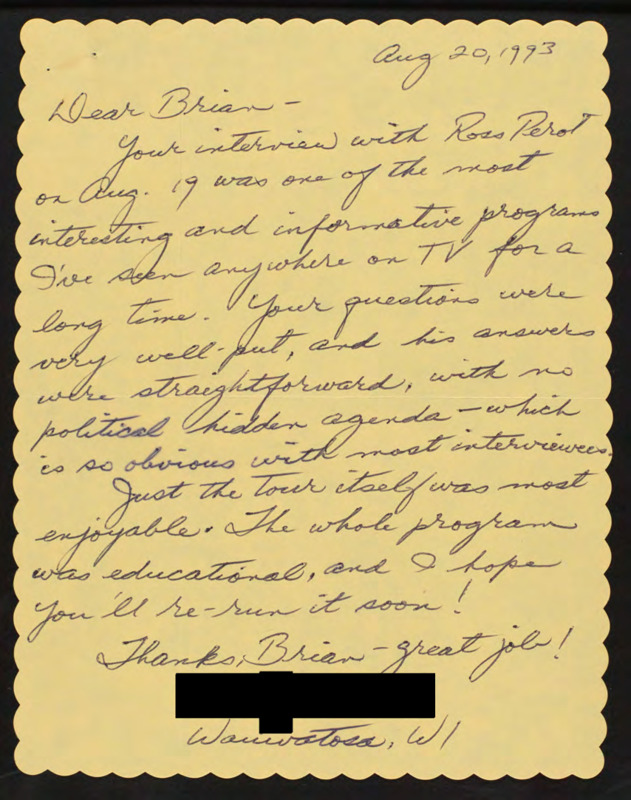 Aug 20, 1993
Dear Brian -
Your interview with Ross Perot
on Aug. 19 was one of the most
interesting and informative programs
I've seen anywhere on TV for a
long time. Your questions were
very well-put, and his answers
were straightforward, with no
political hidden agenda - which
is so obvious with most interviewees.
Just the tour itself was most
enjoyable. The whole program
was educational, and I hope
you'll re-run it soon!
Thanks, Brian - great job!
Wauwatosa, WI